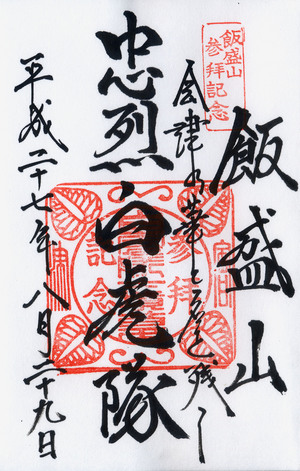 飯盛山
飯盛山
参拝記念
会津乃華と名を残し
忠烈白虎隊
参拝
記念
平成二十七年八月二十九日